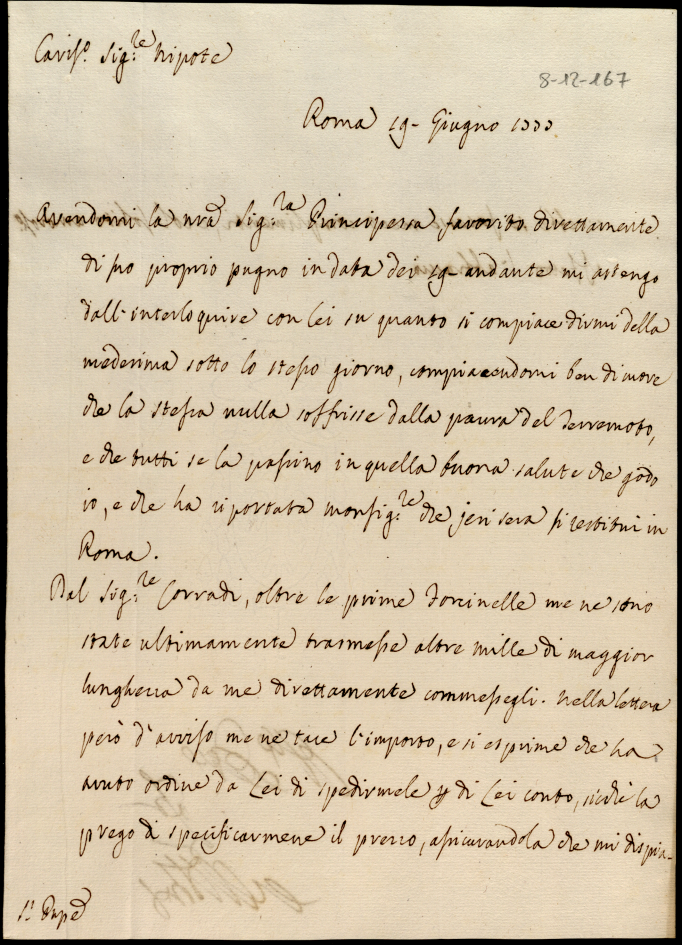 Cariss.o Sig.re Nipote
8-12-167
Roma 19 Giugno 1777
Avendomi la nrã Sig.ra Principessa favorito direttamente
di suo proprio pugno in data dei 19 andante mi astengo
dall'interloquire con Lei su quanto si compiace dirmi della
medesima sotto lo stesso giorno, compiacendomi ben di core
che la stessa nulla soffrisse dalla paura del Terremoto,
e che tutti se la passino in quella buona salute che godo
io, e che ha riportata monsig.re che jeri sera si restituì in
Roma.
Dal Sig.re Corradi, oltre le prime Torcinelle me ne sono
state ultimamente trasmesse altre mille di maggior
lunghezza da me direttamente commessegli. Nella lettera
però d'avviso me ne tace l'importo, e si esprime che ha
avuto ordine da Lei di spedirmele di Lei conto, sicchè la
prego di specificarmene il prezzo, assicurandola che mi dispia-